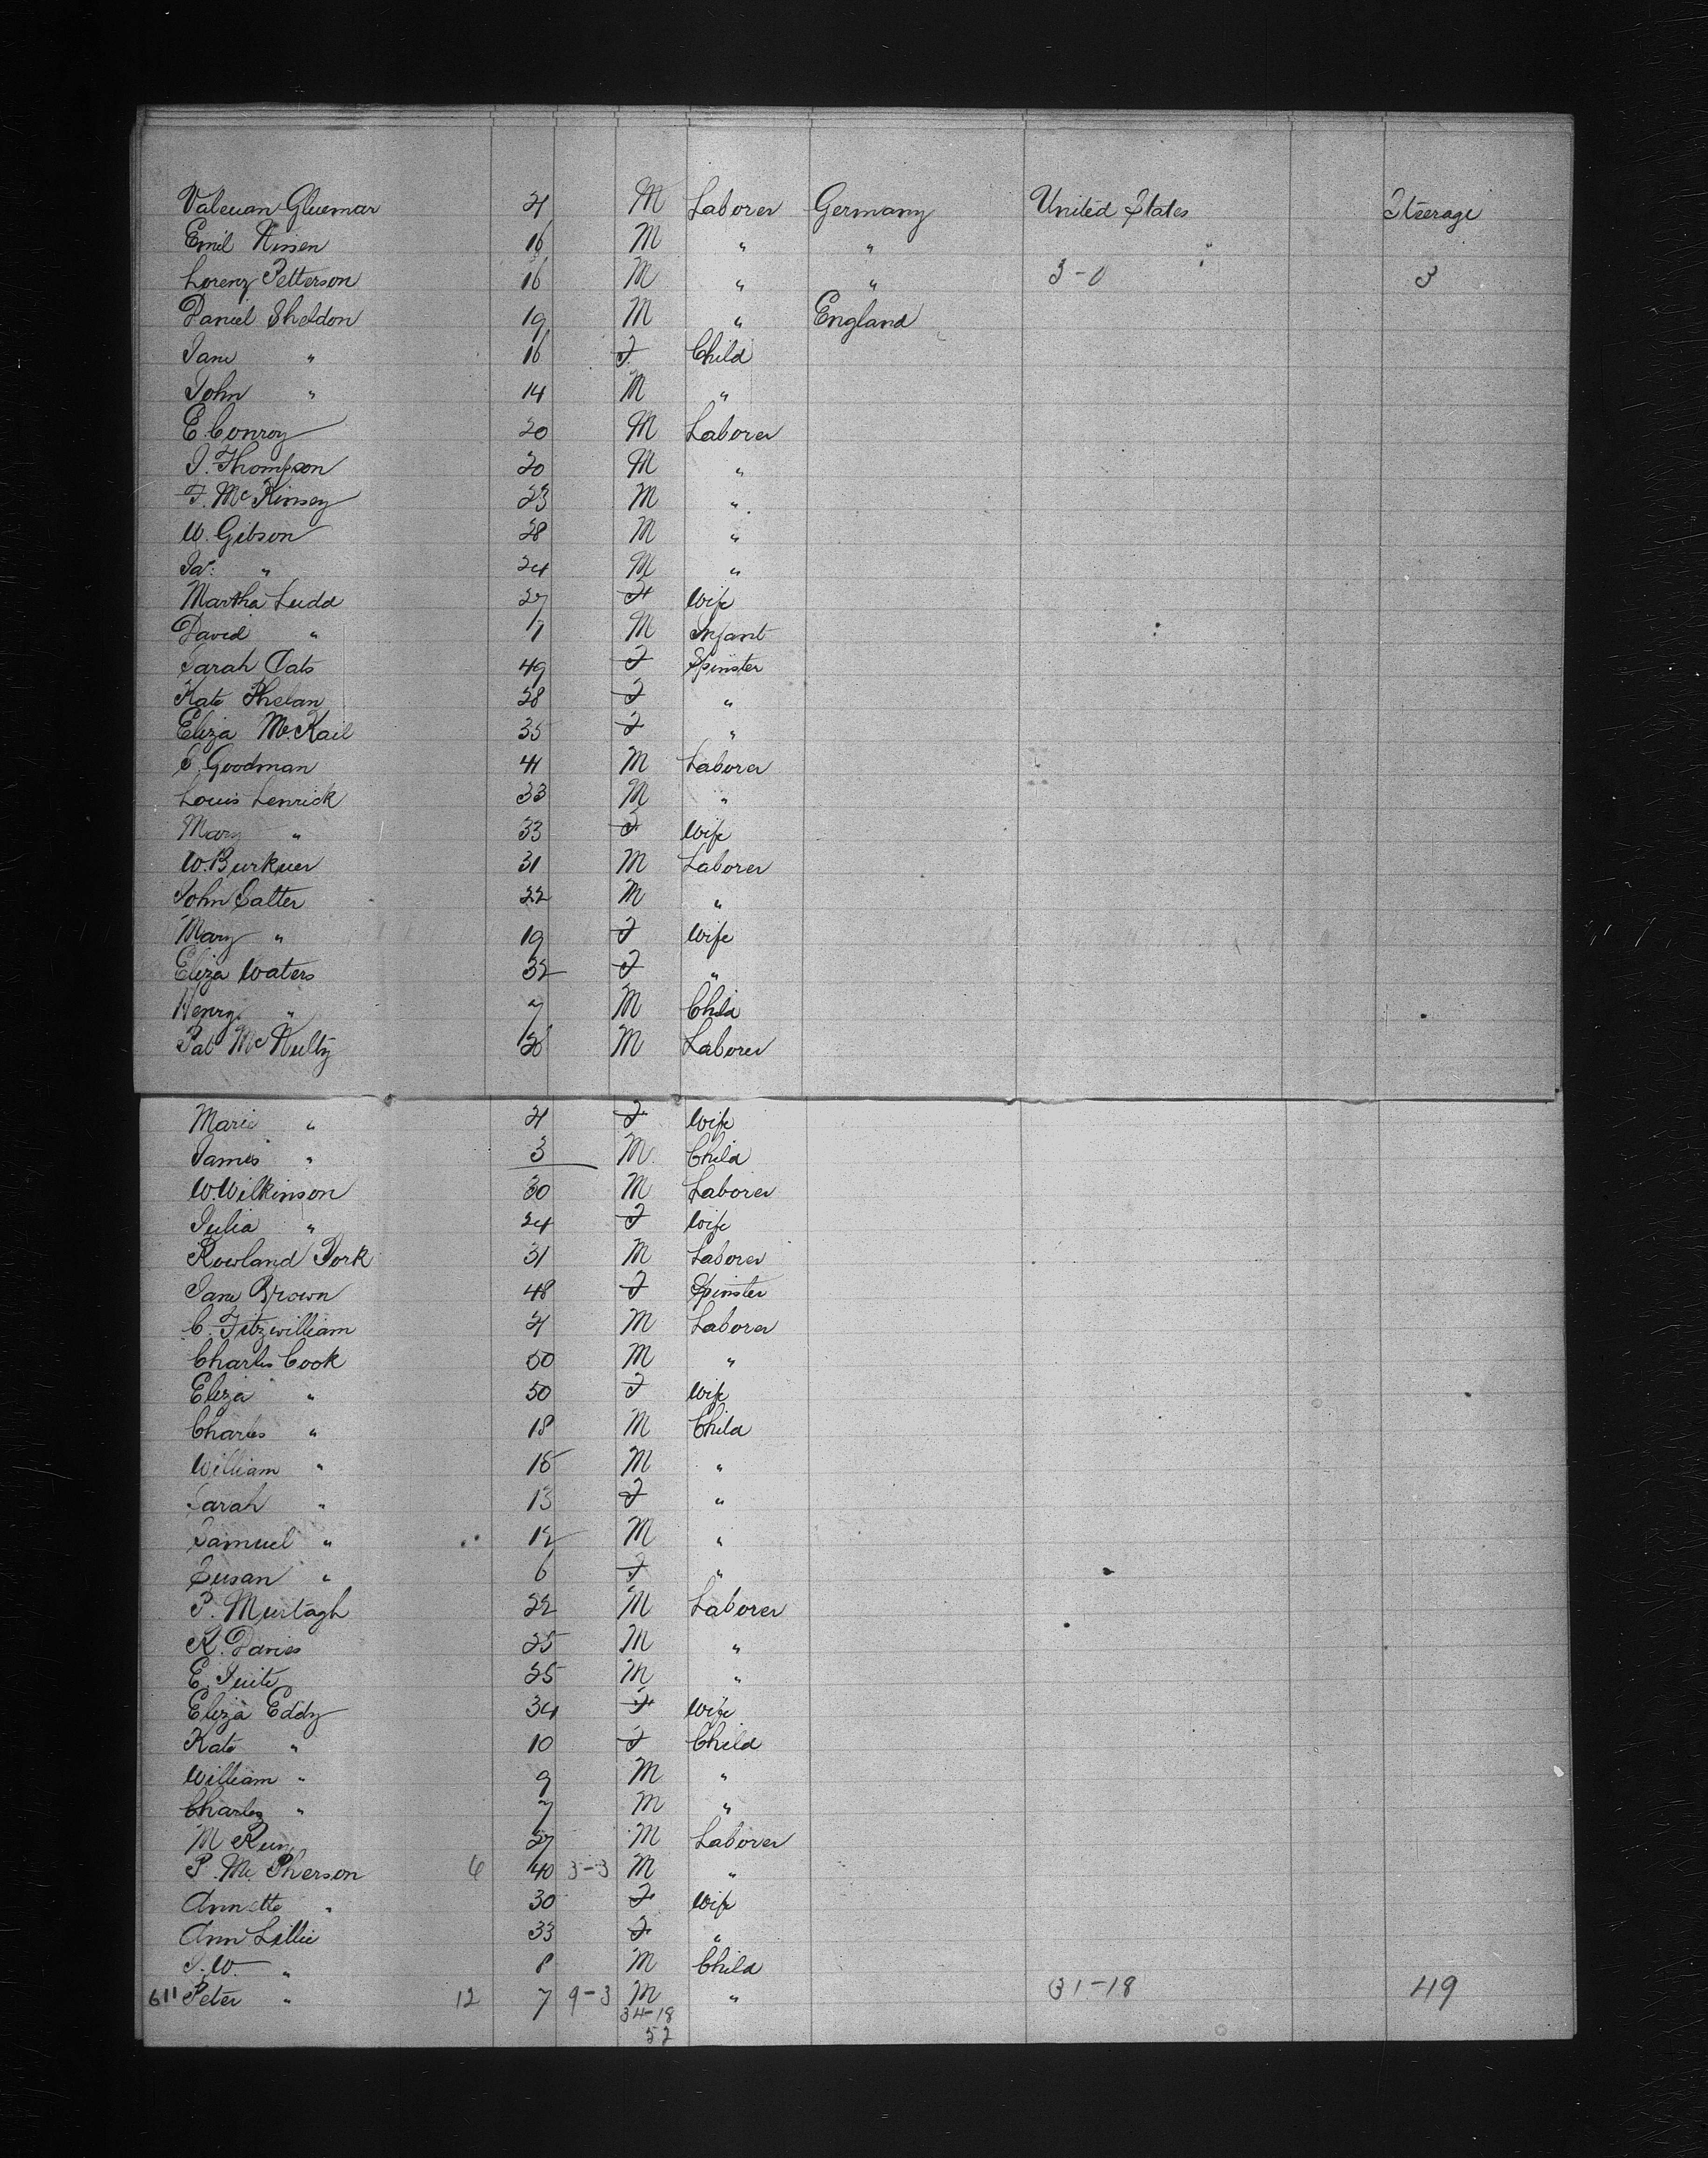 Valeuan Gluemar 21 M Laborer Germany United States Steerage
Emil Nissen 16 M " " "
Lorenz Petterson 16 M " " 3-0 3
Daniel Sheldon 19 M " England
Jane " 16 F Child
John " 14 M "
E. Conroy 20 M Laborer
J. Thompson 20 M "
F. McKinsey 23 M "
W. Gibson 28 M "
Jas: " 24 M "
Martha Ludd 27 F Wife
David " 1 M Infant
Sarah Oats 49 F Spinster
Kate Phelan 28 F "
Eliza McKail 35 F "
S. Goodman 41 M Laborer
Louis Lenrick 33 M "
Mary " 33 F Wife
W. Burkuer 31 M Laborer
John Salter 22 M "
Mary " 19 F Wife
Eliza Waters 32 F "
Henry " 7 M Child
Pat McNulty 26 M Laborer
Marie " 21 F Wife
James " 3 M Child
W. Wilkinson 30 M Laborer
Julia " 24 F Wife
Rowland York 31 M Laborer
Jane Brown 48 F Spinster
C. Fitzwilliam 21 M Laborer
Charles Cook 50 M "
Eliza " 50 F Wife
Charles " 18 M Child
William " 15 M "
Sarah " 13 F "
Samuel " 12 M "
Susan " 6 F "
P. Murtagh 22 M Laborer
K. Davies 25 M "
E. Tuite 25 M "
Eliza Eddy 34 F Wife
Kate " 10 F Child
William " 9 M "
Charles " 7 M "
M 27 M Laborer
P. McPherson 6 40 3-3 M "
Annette " 30 F Wife
Ann Lillie 33 F "
J. W. " 8 M Child
611 Peter " 12 7 9-3 M " 31-18 49
34-18
52